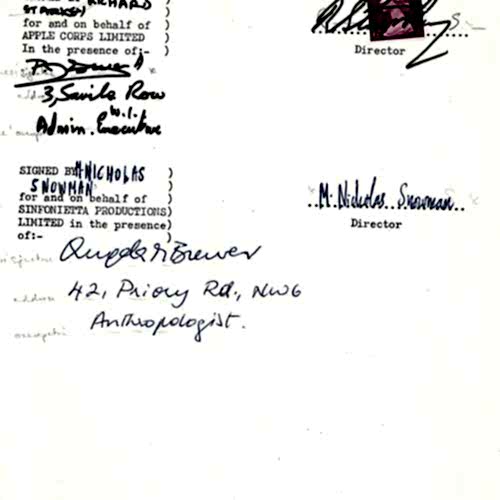 RICHARD )
STARKEY )
for and on behalf of )
APPLE CORPS LIMITED )
In the presence of:- )
Director
3, Savile Row
W.1.
Admin. Executive
SIGNED BY M NICHOLAS )
SNOWMAN )
for and on behalf of )
SINFONIETTA PRODUCTIONS)
LIMITED in the presence)
of:- )
..M. Nicholas..Snowman..
Director
Brewer
42, Priory Rd., NW6
address
Anthropologist.